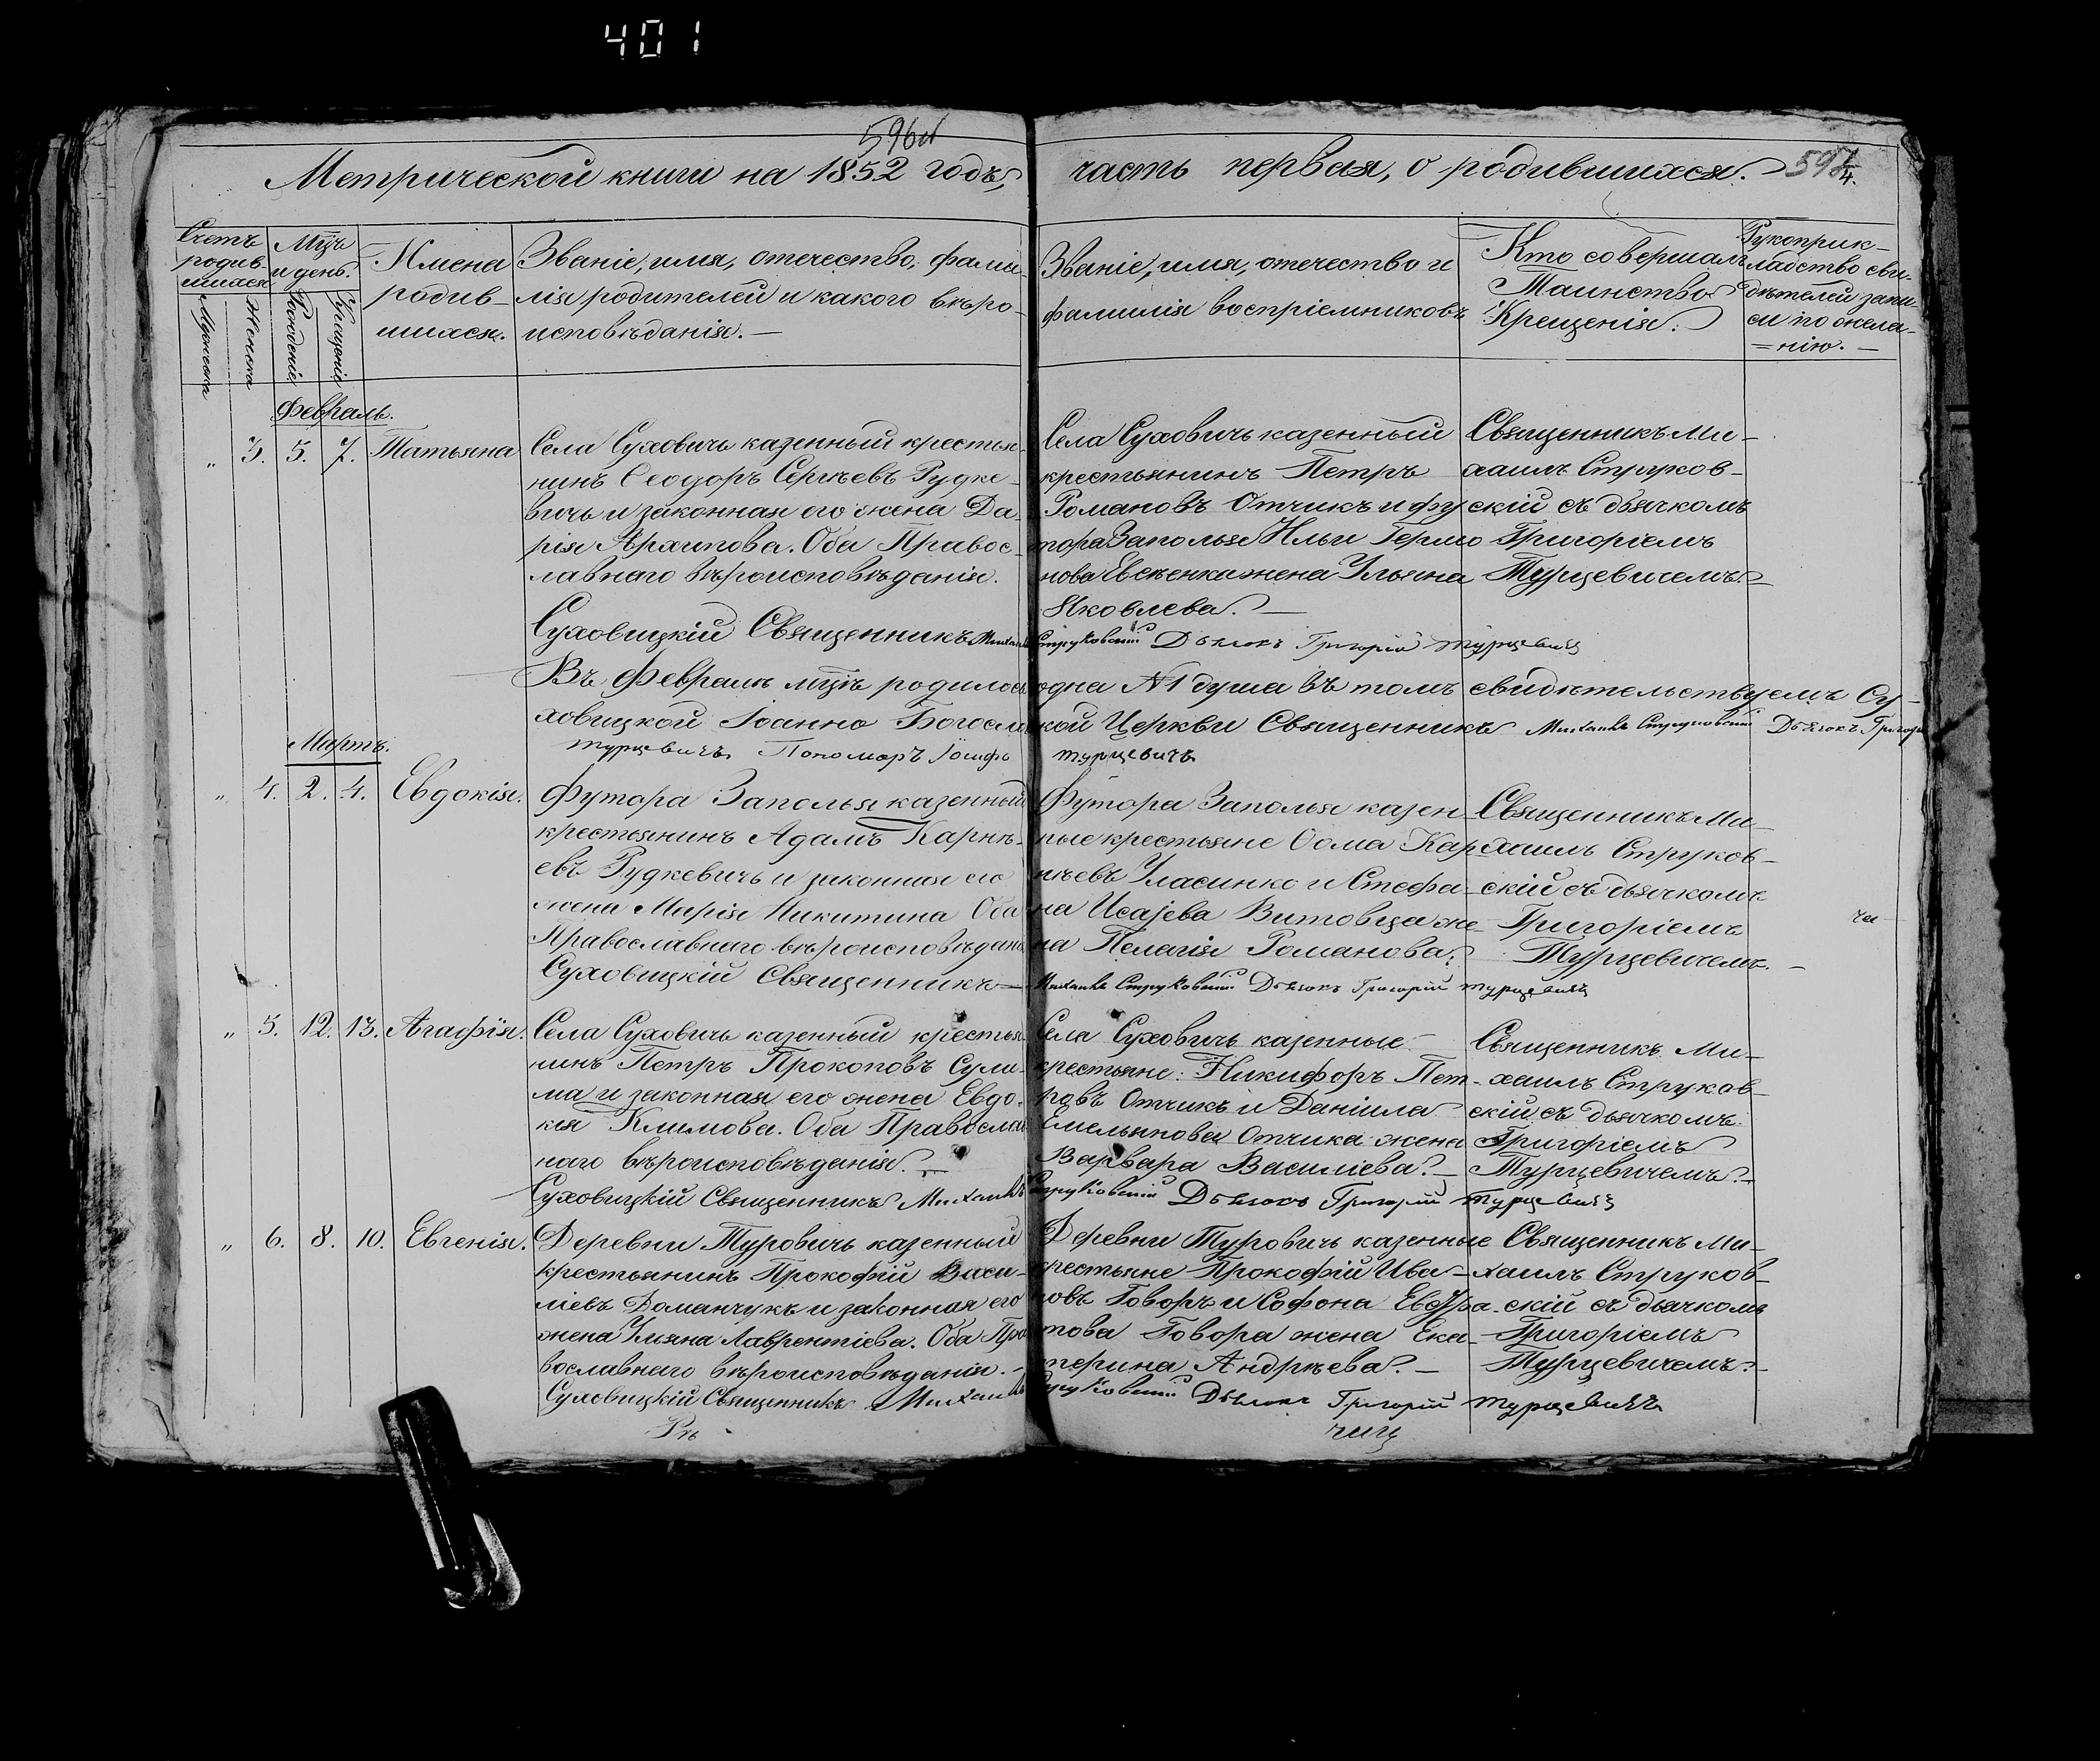 401
596
Метрической книги на 1852 годъ, часть первая, о родившихся.
Счетъ родив-шихся
Мцъ и день.
Мужеска
Женска
Рожденіе
Крещеніе
Имена
родив-
шихся.
Званіе, имя, отечество, фами-
лія родителей и какого вѣро-
исповѣданія.—
Званіе, имя, отечество и
фамилія воспріемниковъ
Кто совершалъ
Таинство
Крещенія.
Рукоприк-
ладство сви-
дѣтелей запи-
си по жела-
=нію.—
Февраль.
„ 3. 5. 7. Татьяна
Села Суховичь казенный крестья-
нинъ Ѳеодоръ Сергѣевъ Рудке-
вичь и законная его жена Да-
рія Архипова. Оба Правос-
лавнаго вѣроисповѣданія.
Села Суховичь казенный
крестьянинъ Петръ
Романовъ Отчикъ и фу
тора Заполья Ильи Гермо
нова Евсеенка жена Ульяна
Яковлева.—
Священникъ Ми-
хаилъ Струков-
скій съ дьячкомъ
Григоріемъ
Турцевичемъ.
Суховицкій Священникъ Михаилъ Струковскій Дьячокъ Григорій Турцевичъ
Въ Февралѣ мцѣ родилось одна №1 душа въ томъ свидѣтельствуемъ Су-
ховицкой Іоанно Богослов кой Церкви Священникъ Михаилъ Струковскій Дьячокъ Григорій
Турцевичъ Пономаръ Іосифъ Турцевичъ
Мартъ.
„ 4. 2. 4. Евдокія.
Футора Заполья казенный
крестьянинъ Адамъ Карнѣ-
евъ Рудкевичь и законная его
жена Марія Никитина Оба
Православнаго вѣроисповѣдані
Футора Заполья казен-
ные крестьяне Ѳома Кар
нѣевъ Уласинко и Стефа-
на Исаіева Витовца же-
на Пелагія Романова.
Священникъ Ми-
хаилъ Струков-
скій съ дьячкомъ
Григоріемъ
Турцевичемъ.—
Суховицкій Священникъ— Михаилъ Струковскій Дьячокъ Григорій Турцевичъ
„ 5. 12. 13. Агафія.
Села Суховичь казенный крестья
нинъ Петръ Прокоповъ Сули-
ма и законная его жена Евдо-
кія Климова. Оба Православ
наго вѣроисповѣданія.—
Села Суховичь казенные
крестьяне: Никифоръ Пет-
ровъ Отчикъ и Даніила
Емельянова Отчика жена
Варвара Василіева.—
Священникъ Ми-
хаилъ Струков-
скій съ дьячкомъ
Григоріемъ
Турцевичемъ.—
Суховицкій Священникъ Михаилъ Струковскій Дьячокъ Григорій Турцевичъ
„ 6. 8. 10. Евгенія.
Деревни Туровичь казенный
крестьянинъ Прокофій Васи-
ліевъ Доманчукъ и законная его
жена Ульяна Лаврентіева. Оба Пра
вославнаго вѣроисповѣданія.—
Деревни Туровичь казенные
крестьяне Прокофій Ива-
новъ Говоръ и Софона Евфра-
това Говора жена Ека-
терина Андрѣева.—
Священникъ Ми-
хаилъ Струков-
скій съ дьячкомъ
Григоріемъ
Турцевичемъ.—
Суховицкій Священникъ Михаилъ Струковскій Дьячокъ Григорій Турцевичъ